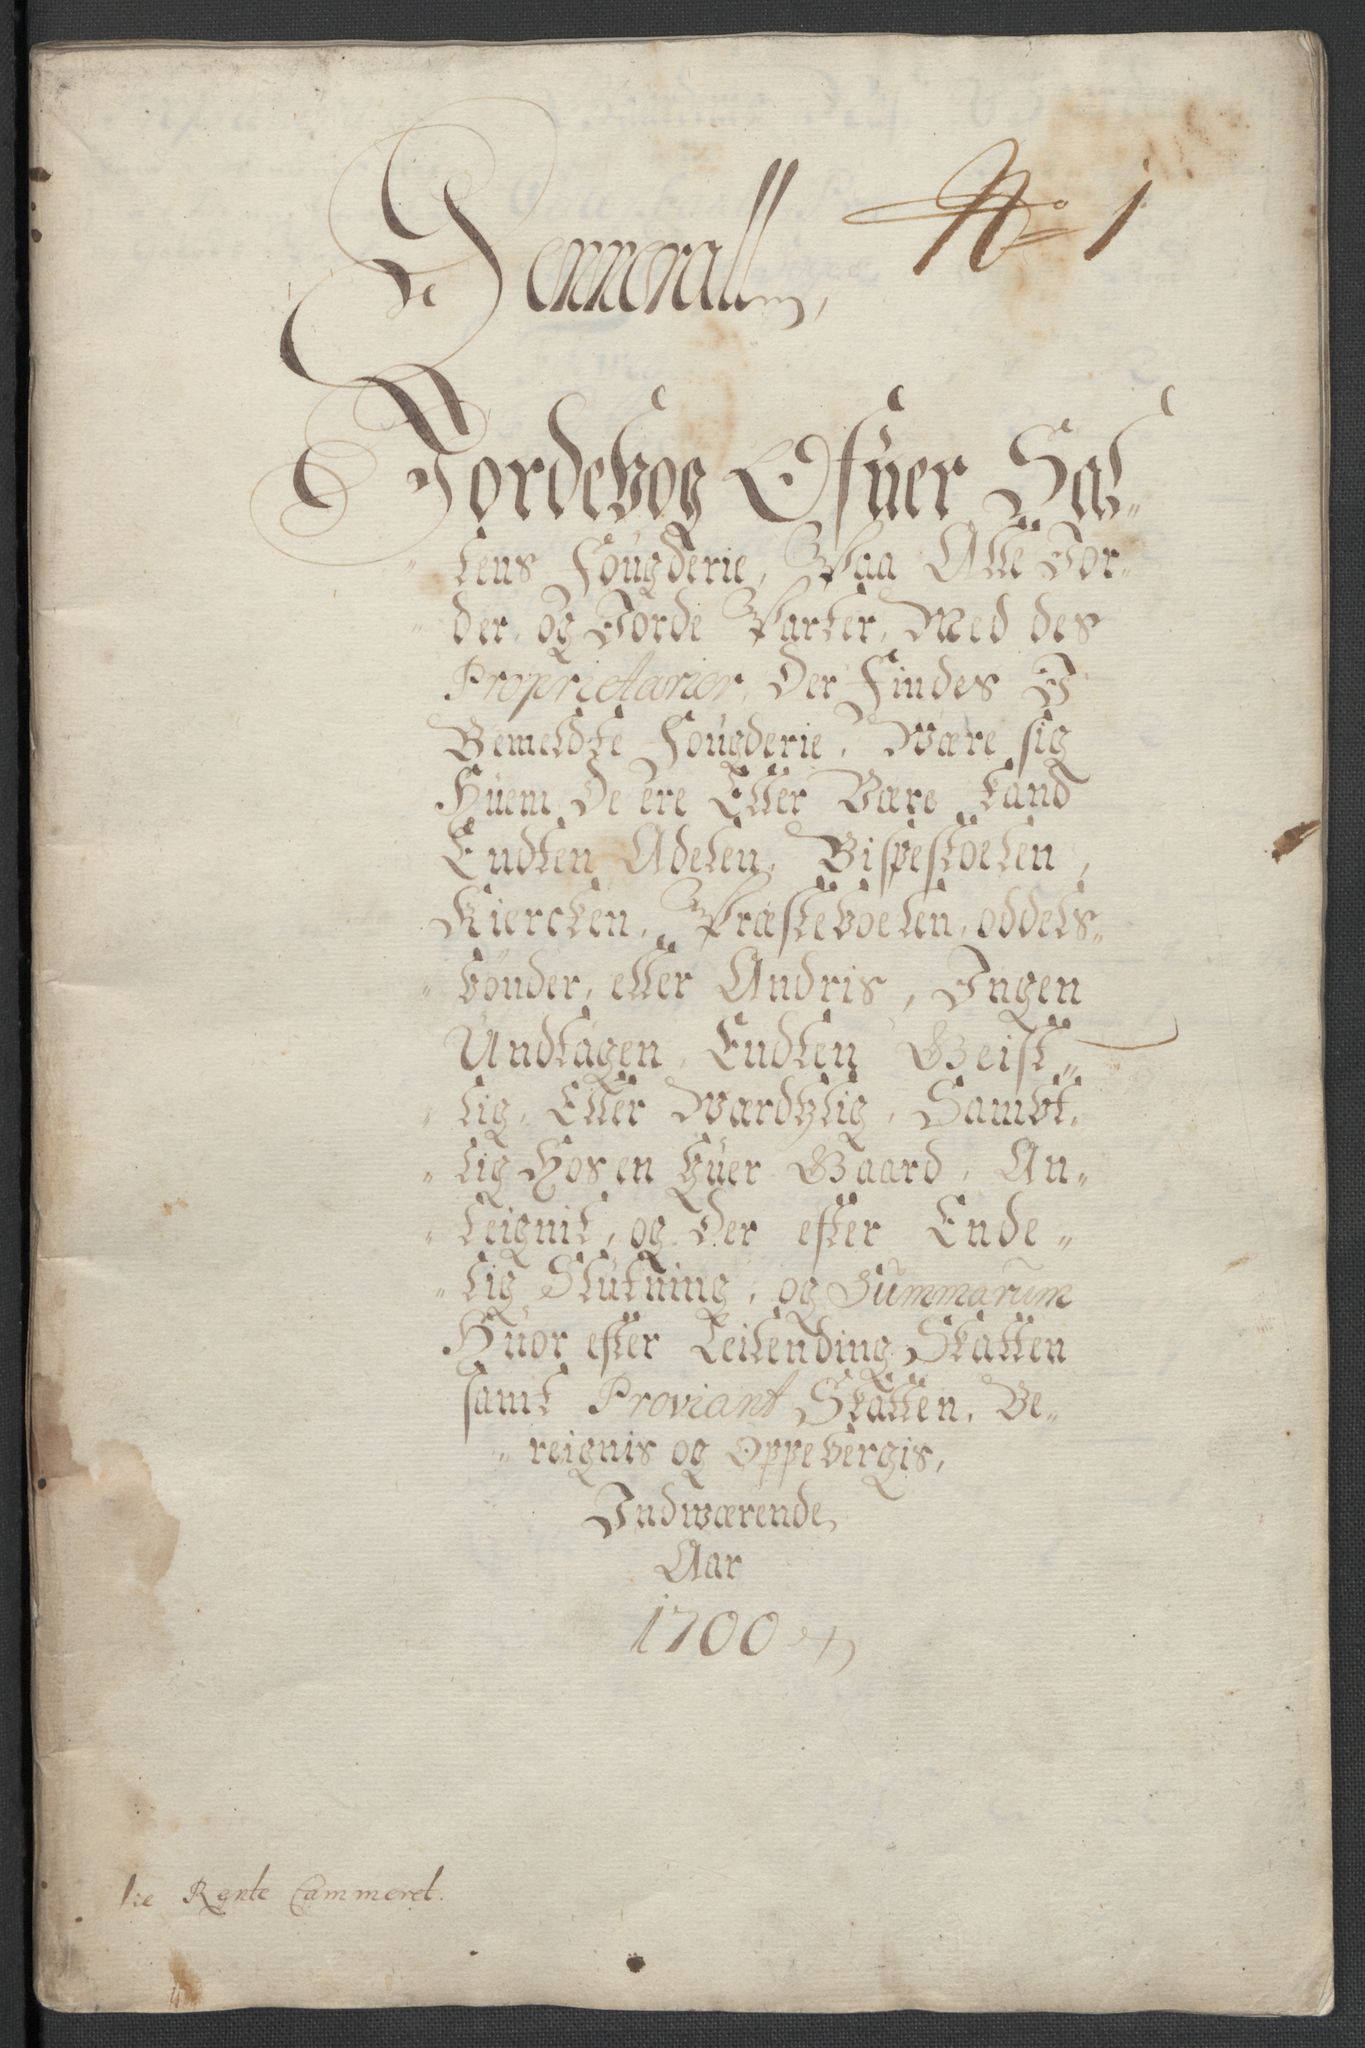 No 1
Gennerall
Jordebog Ofuer Sal¬
tens Fougderie, Paa Alle Jor¬
der og Jorde Parter, Med des
Proprietarier, Der Findes I
Bemeldte Fougderie, Være sig
Huem De ere Eller Være kand
Endten Adelen, Bispestoelen,
Kiercken, Præsteboelen, oddels¬
bønder, eller Andris, Ingen
Undtagen, Endten Geist¬
lig, Eller Værdtzlig, Sambt¬
lig Hos en huer Gaard, An¬
teignit, og Der efter Ende¬
lig Slutning, og Summarum
Huor efter Leilending Skatten
samt Proviant Skatten, Be¬
reignis og Oppebergis,
Indwærende
Aar
1700
Rente Cammeret.